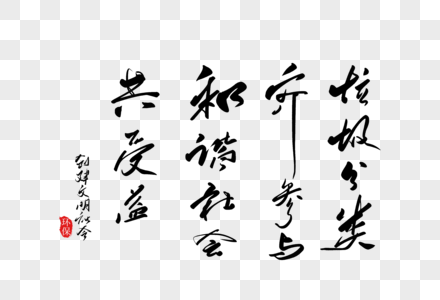 垃圾分类
齐参与
和谐社会
共受益
创建文明社会
环保